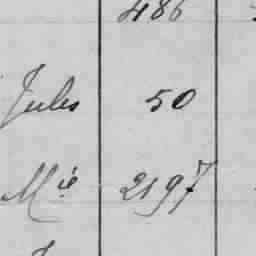 486
Jules 50
Mie 2197